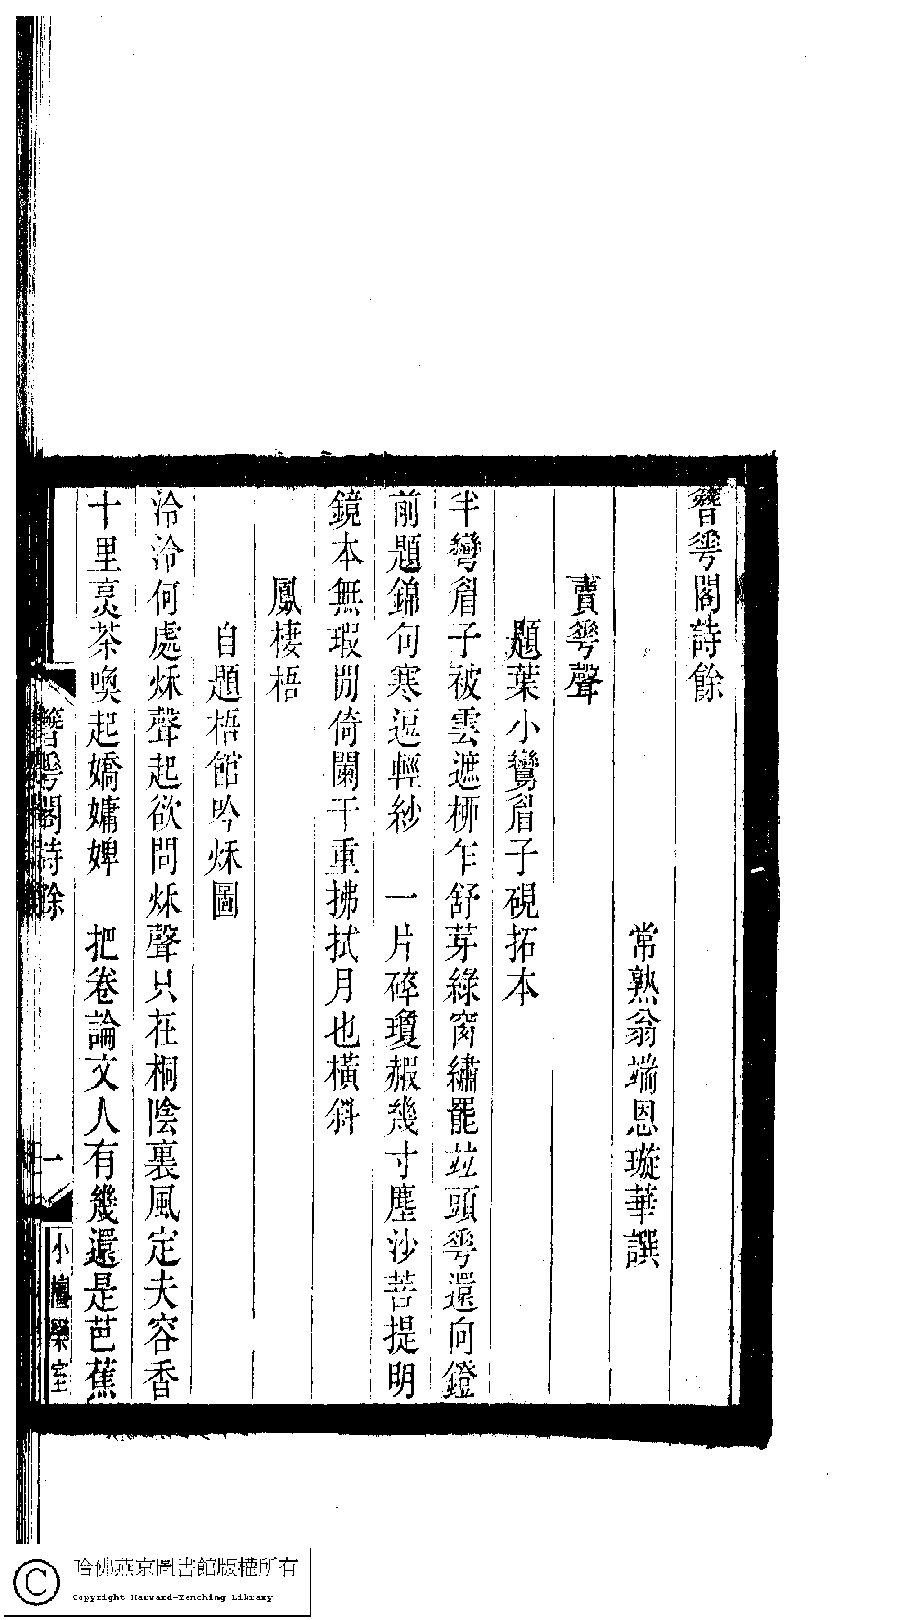 簪萼閣詩餘
常熟翁端恩璇華譔
賣萼聲
題葉小鸞眉子硯拓本
半彎眉子被雲遮栁乍舒芽綠窗繡罷竝頭萼還向鐙
前題錦句寒逗輕紗　一片碎瓊瘕幾寸塵沙菩提明
鏡本無瑕閒倚闌干重拂拭月也橫斜
鳳棲梧
自題梧館吟秌圖
泠泠何處秌聲起欲問秌聲只在桐陰裏風定夫容香
十里烹茶喚起嬌慵婢　把卷論文人有幾還是芭蕉
簪萼閣詩餘
一
小檀欒室
哈佛燕京圖書館版權所有
Copyright Harvard-Yenching Library